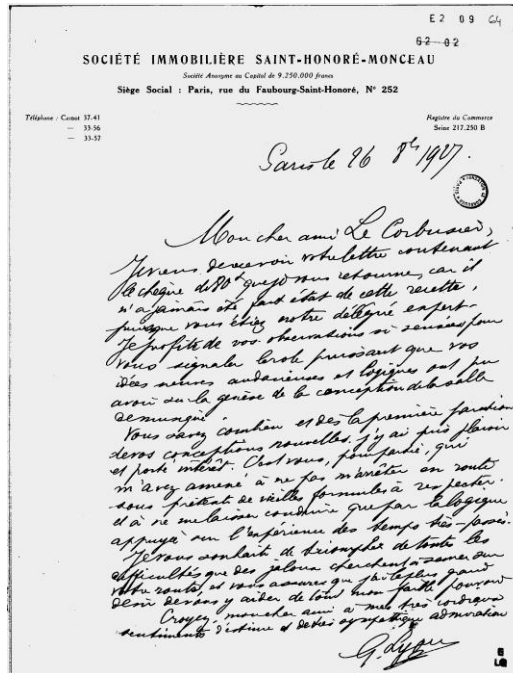 E2 09 64
62-02
SOCIÉTÉ IMMOBILIÈRE SAINT-HONORÉ-MONCEAU
Société Anonyme au Capital de 9.250.000 francs
Siège Social : Paris, rue du Faubourg-Saint-Honoré, N° 252
Téléphone : Carnot 37-41
— 33-56
— 33-57
Registre du Commerce
Seine 217.250 B
Paris le 26 8bre 1927.
Mon cher ami Le Corbusier,
Je viens de recevoir votre lettre contenant
le chèque de 80 que je vous retourne, car il
n'a jamais été fait état de cette recette,
puisque vous étiez notre délégué expert.
Je profite de vos observations si sensées pour
vous signaler le rôle puissant que vos
idées neuves audacieuses et logiques ont pu
avoir sur la genèse de la conception de la salle
de musique.
Vous savez combien et dès la première
de vos conceptions nouvelles j'y ai pris plaisir
et porté intérêt. C'est vous, pour partie, qui
m'avez amené à ne pas m'arrêter en route
sous prétexte de vieilles formules à respecter
et à ne me laisser conduire que par la logique
appuyée sur l'expérience des temps très-passés.
Je vous souhaite de triompher de toutes les
difficultés que des jaloux cherchent à semer sur
votre route, et vous assure que j'ai le plus grand
désir de vous y aider de tout mon faible pouvoir
Croyez, mon cher ami à mes très cordiaux
sentiments d'estime et de très sympathique admiration
G. Lyon